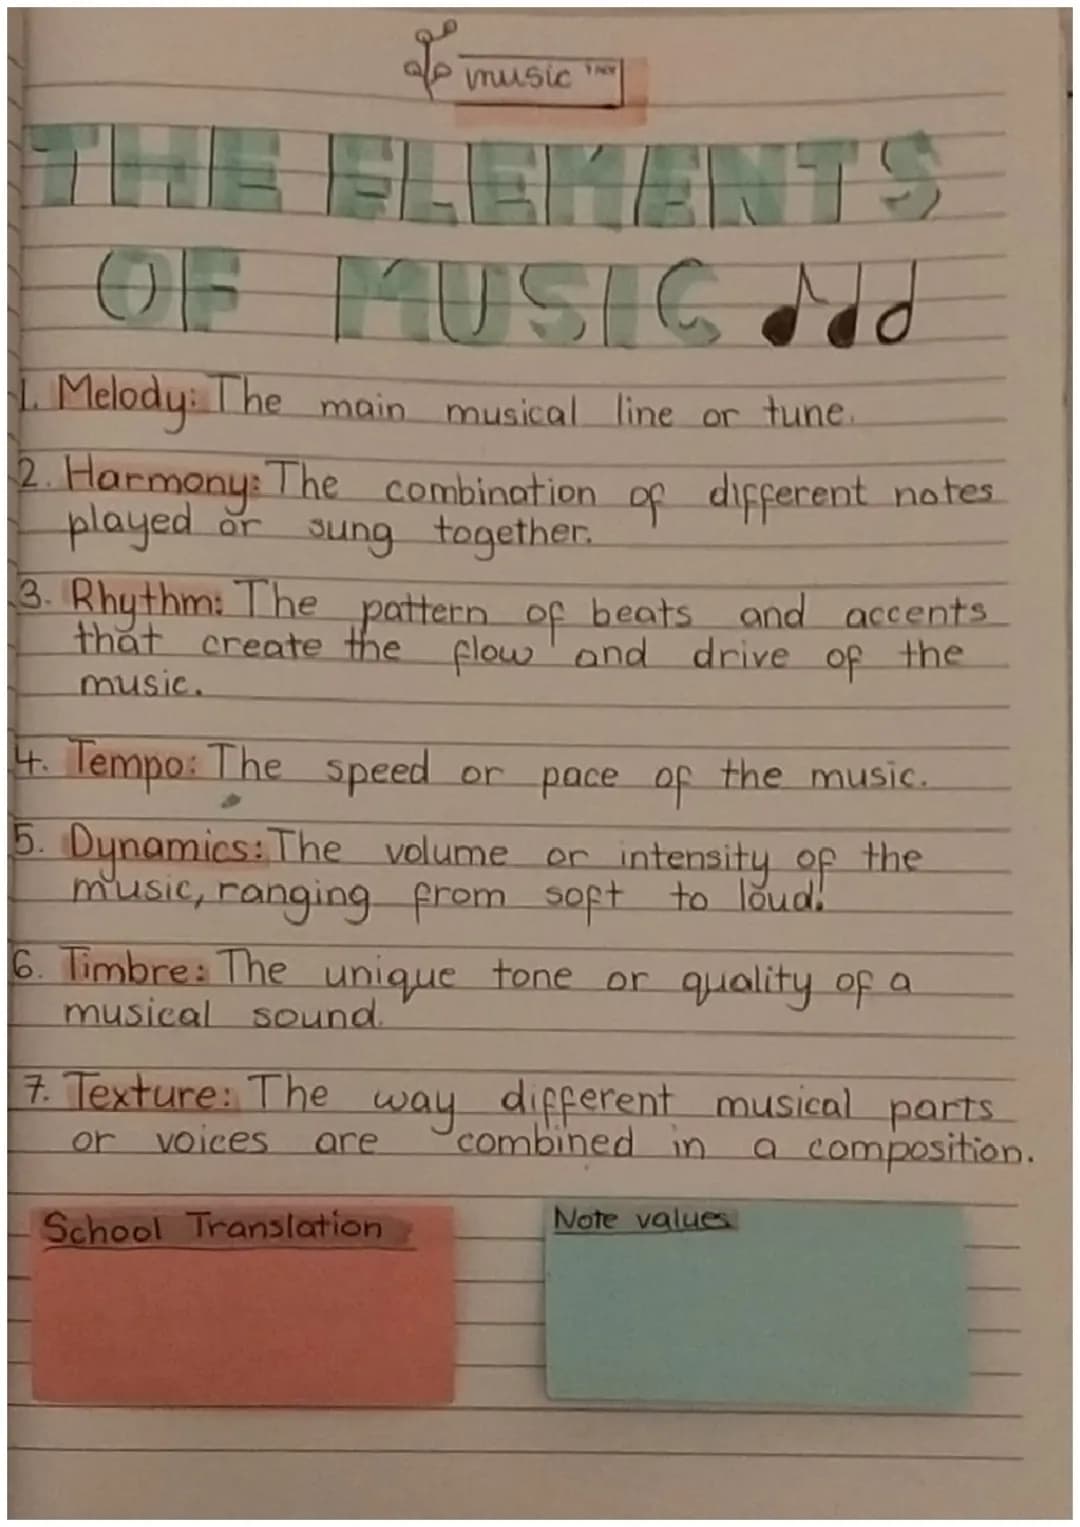 music
THE ELEMENTS
OF MUSIC
1. Melody: The main musical line or tune.
2. Harmony: The combination of different notes
played or sung together.
3. Rhythm: The pattern of beats and accents
that create the flow and drive of the
music.
4. Tempo: The speed or pace of the music.
5. Dynamics: The volume or intensity of the
music, ranging from soft to loud.
6. Timbre: The unique tone or quality of a
musical sound.
7. Texture: The way different musical parts
or voices are combined in a composition.
School Translation
Note values